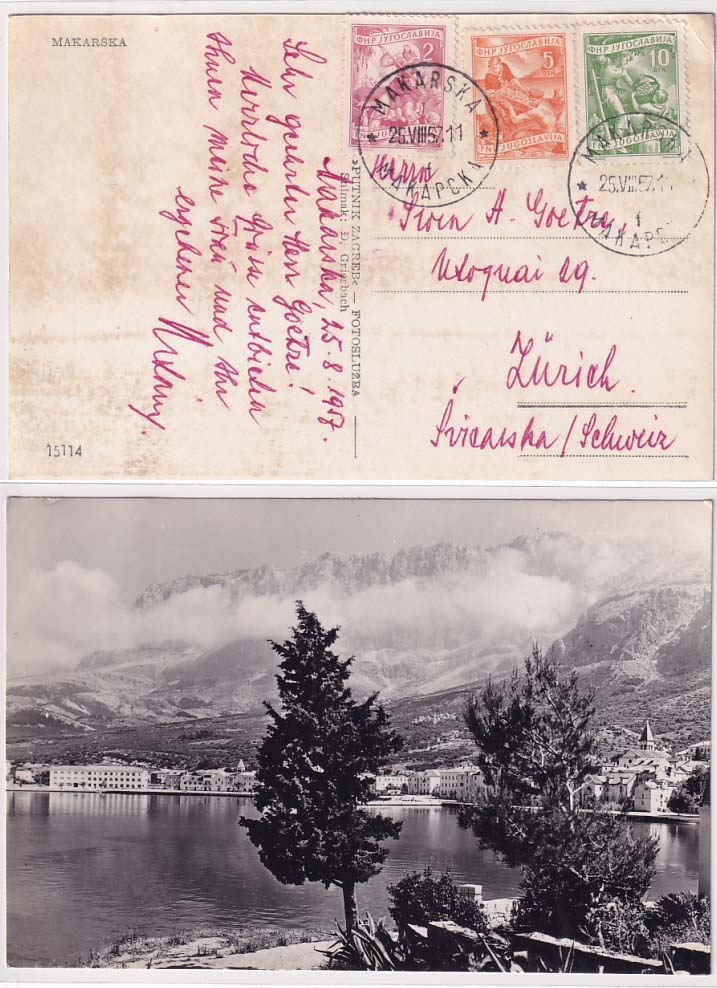 MAKARSKA
ФНР ЈУГОСЛАВИЈА
2
FNR JUGOSLAVIJA
ФНР ЈУГОСЛАВИЈА
5
DIN
FNR JUGOSLAVIJA
ФНР ЈУГОСЛАВИЈА
10
DIN
FNR JUGOSLAVIJA
MAKARSKA
25.VIII.57.11
f
МАКАРСКА
MAKARSKA
25.VIII.57.11
f
МАКАРСКА
Makarska, 25.8.1957.
Sehr geehrter Herr Goetze!
Herrliche Grüsse entbieten
Ihnen meine Frau und Ihr
ergebener
»PUTNIK ZAGREB« — FOTOSLUŽBA
Snimak: Đ. Griesbach
Herrn
A. Goetze,
Utoquai 29.
Zürich.
Švicarska/Schweiz
15114